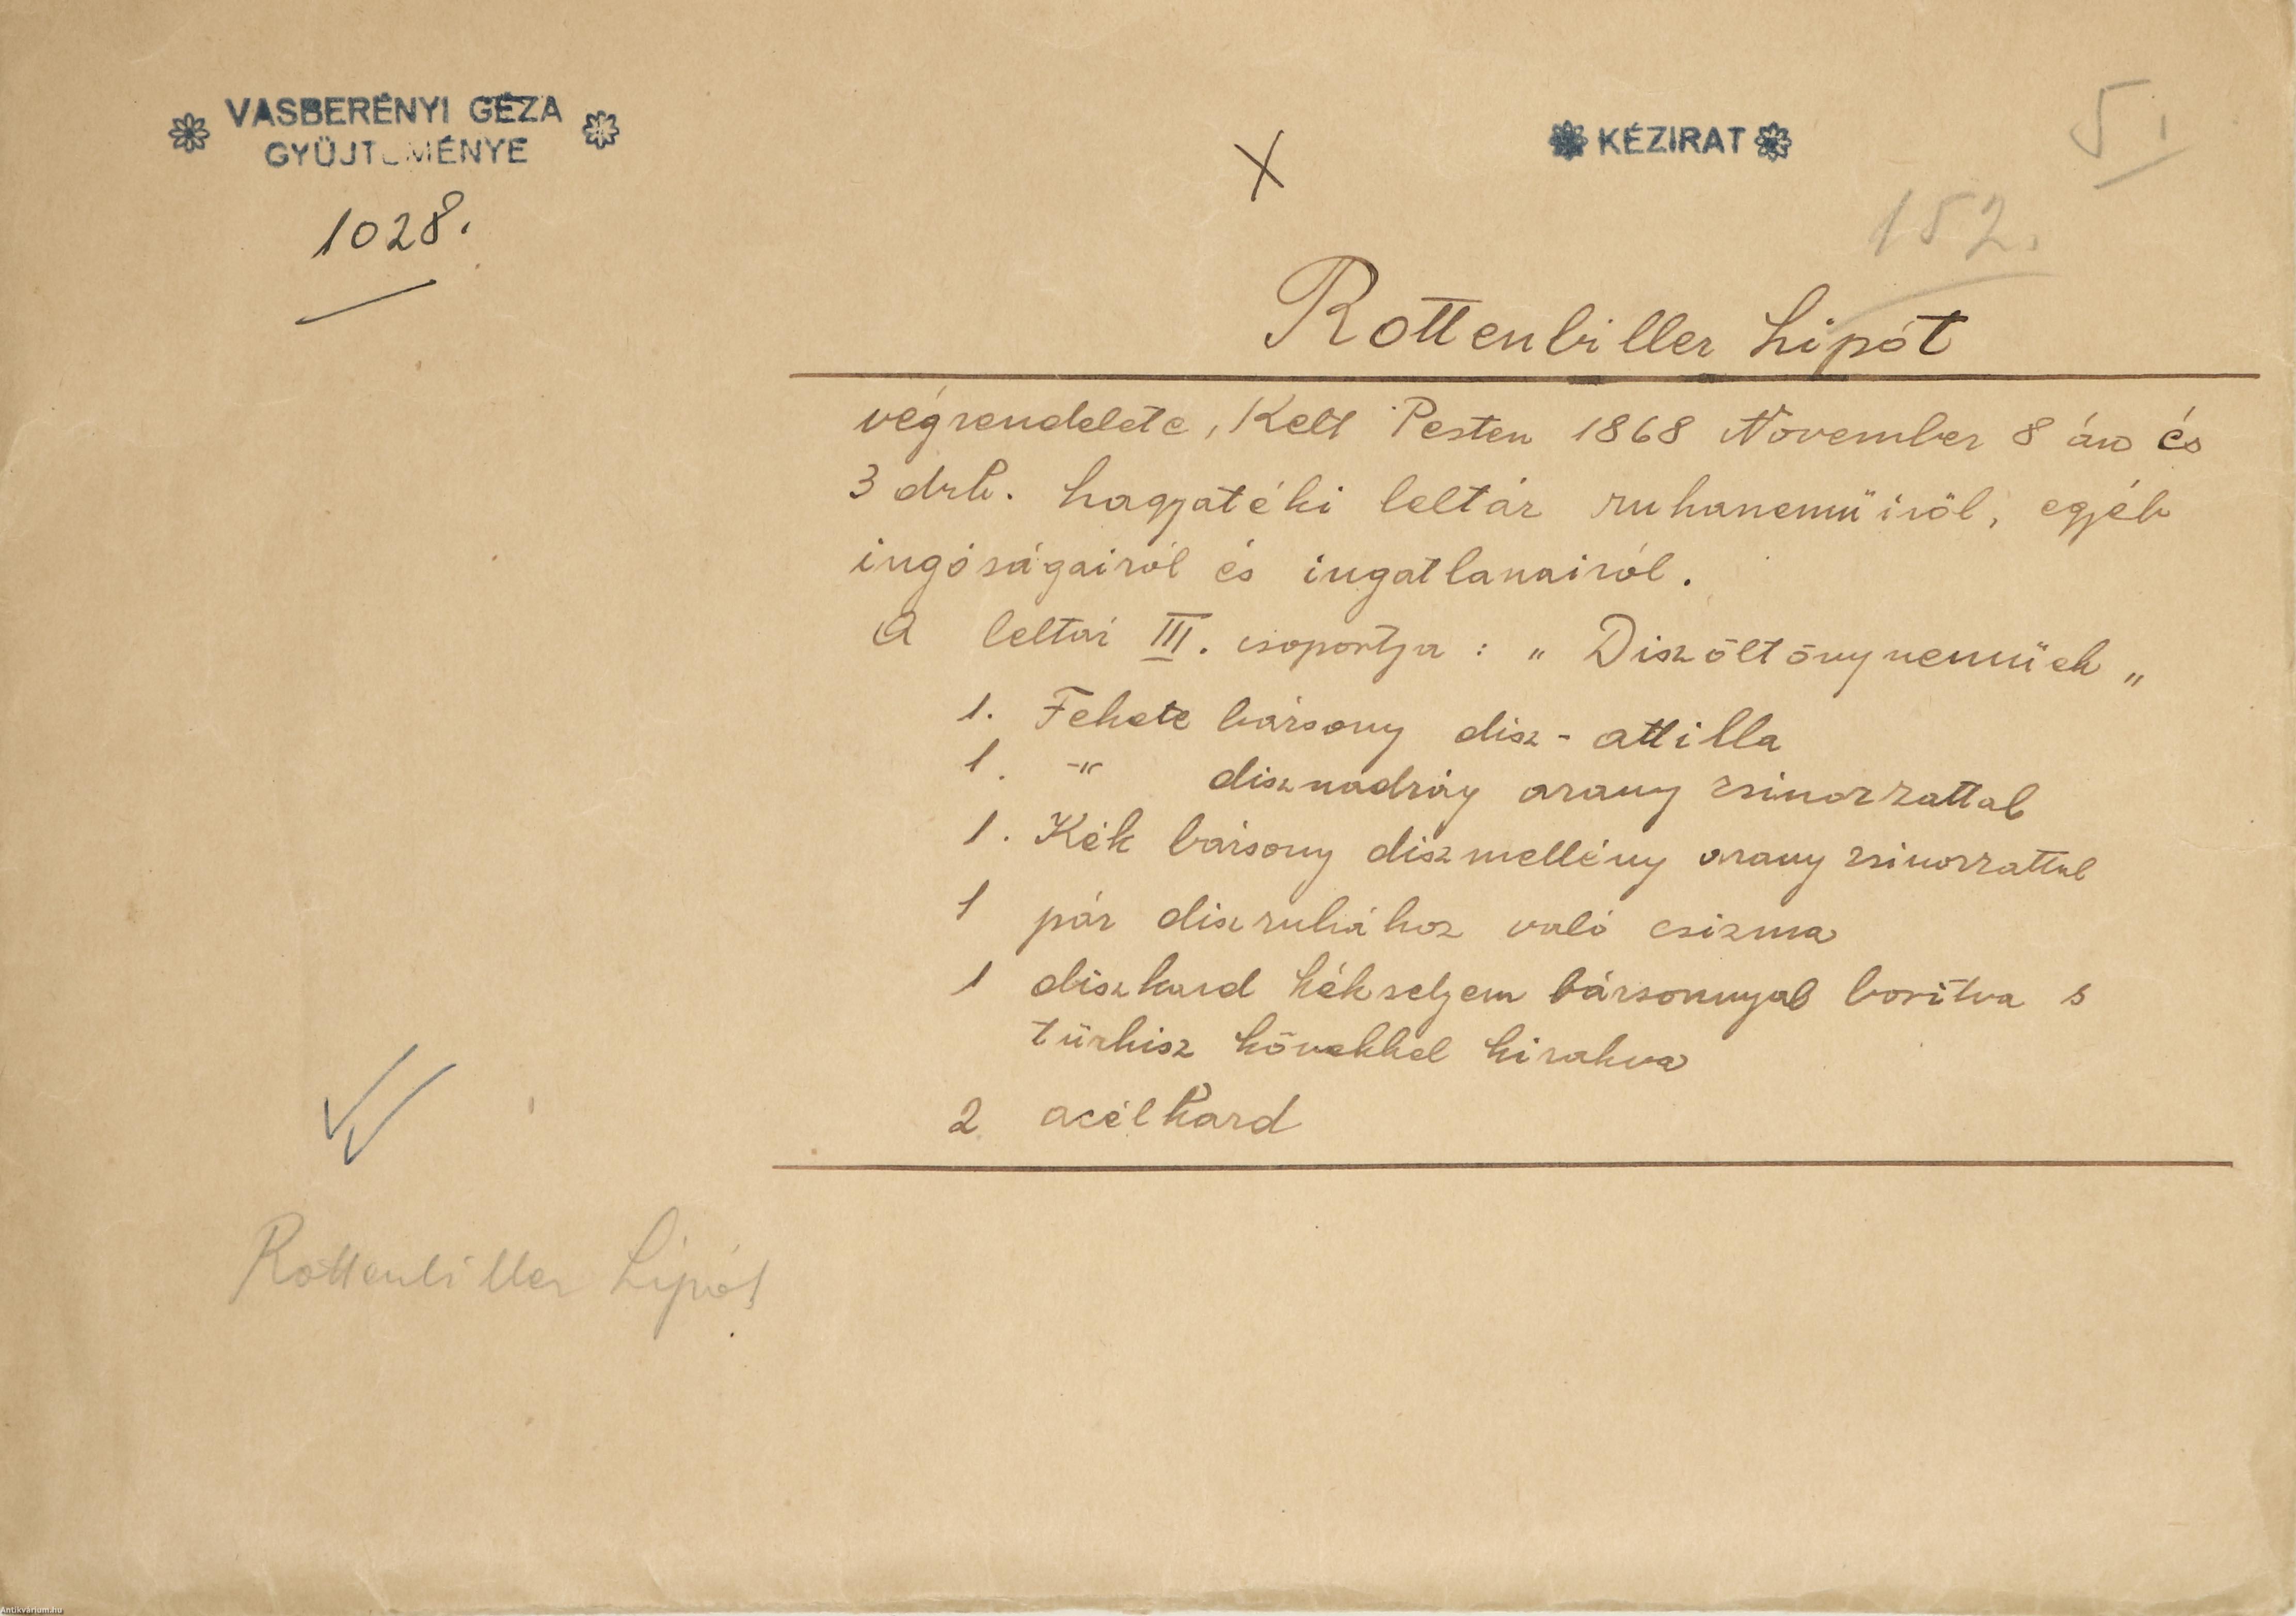 VASBERÉNYI GÉZA
GYÜJTEMÉNYE
1028.
X
KÉZIRAT
5.
152.
Rottenbiller Lipót
végrendelete, Kelt Pesten 1868 November 8 án és
3 drb. hagyatéki leltár ruhanemüiröl, egyéb
ingóságairól és ingatlanairól.
A leltár III. csoportja : „ Diszöltönynemüek „
1. Fekete bársony disz - attilla
1. -"- disznadrág arany zsinorzattal
1. Kék bársony diszmellény arany zsinorzattal
1 pár diszruhához való csizma
1 diszkard kékselyem bársonnyal boritva s
türkisz kövekkel kirakva
2 acélkard
Rottenbiller Lipót
Antikvarium.hu